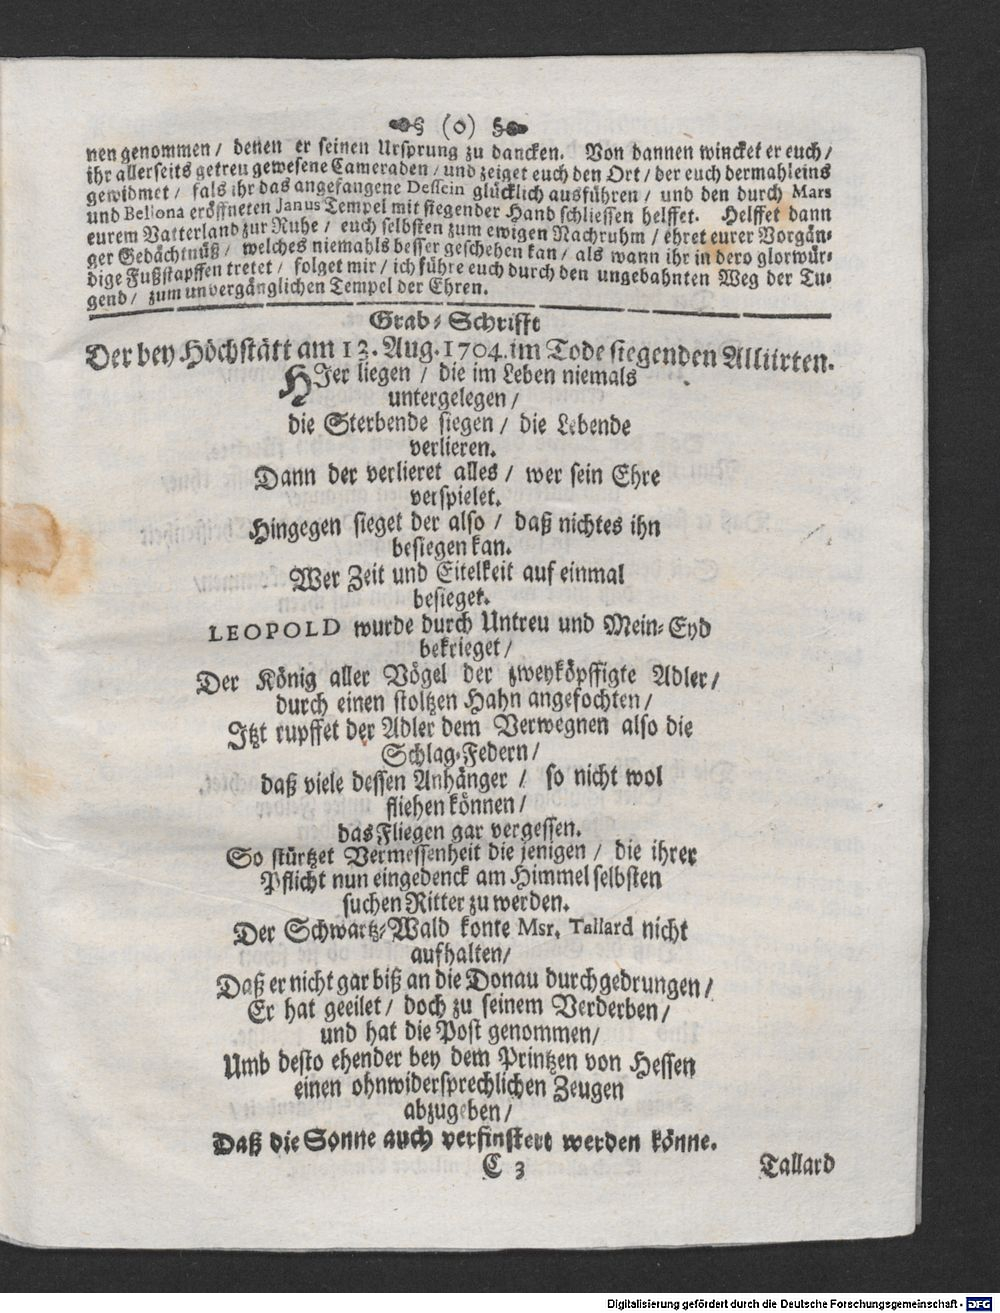 (o)
nen genommen / denen er seinen Ursprung zu dancken. Von dannen wincket er euch /
ihr allerseits getreu gewesene Cameraden / und zeiget euch den Ort / der euch dermahleins
gewidmet / fals ihr das angefangene Dessein glücklich ausführen / und den durch Mars
und Bellona eröffneten Janus Tempel mit siegender Hand schliessen helffet. Helffet dann
eurem Vatterland zur Ruhe / euch selbsten zum ewigen Nachruhm / ehret eurer Vorgän⸗
ger Gedächtnüß / welches niemahls besser geschehen kan / als wann ihr in dero glorwür⸗
dige Fußstapffen tretet / folget mir / ich führe euch durch den ungebahnten Weg der Tu⸗
gend / zum unvergänglichen Tempel der Ehren.
Grab⸗Schrifft
Der bey Höchstätt am 13. Aug. 1704. im Tode siegenden Alliirten.
HIer liegen / die im Leben niemals
untergelegen /
die Sterbende siegen / die Lebende
verlieren.
Dann der verlieret alles / wer sein Ehre
verspielet.
Hingegen sieget der also / daß nichtes ihn
besiegen kan.
Wer Zeit und Eitelkeit auf einmal
besieget.
LEOPOLD wurde durch Untreu und Mein⸗Eyd
bekrieget /
Der König aller Vögel der zweyköpffigte Adler /
durch einen stoltzen Hahn angefochten /
Jtzt rupffet der Adler dem Verwegnen also die
Schlag⸗Federn /
daß viele dessen Anhänger / so nicht wol
fliehen können /
das Fliegen gar vergessen.
So stürtzet Vermessenheit die jenigen / die ihrer
Pflicht nun eingedenck am Himmel selbsten
suchen Ritter zu werden.
Der Schwartz⸗Wald konte Msr. Tallard nicht
aufhalten /
Daß er nicht gar biß an die Donau durchgedrungen /
Er hat geeilet / doch zu seinem Verderben /
und hat die Post genommen /
Umb desto ehender bey dem Printzen von Hessen
einen ohnwidersprechlichen Zeugen
abzugeben /
Daß die Sonne auch verfinstert werden könne.
C 3 Tallard
Digitalisierung gefördert durch die Deutsche Forschungsgemeinschaft - DFG